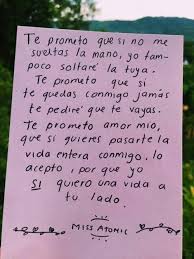 Te prometo que si no me
sueltas la mano, yo tam-
poco soltaré la tuya.
Te prometo que si
te quedas conmigo jamás
te pediré que te vayas.
Te prometo amor mio,
que si quieres pasarte la
vida entera conmigo, lo
acepto, por que yo
SI quiero una vida a
tu lado.
MISS ATOMIC